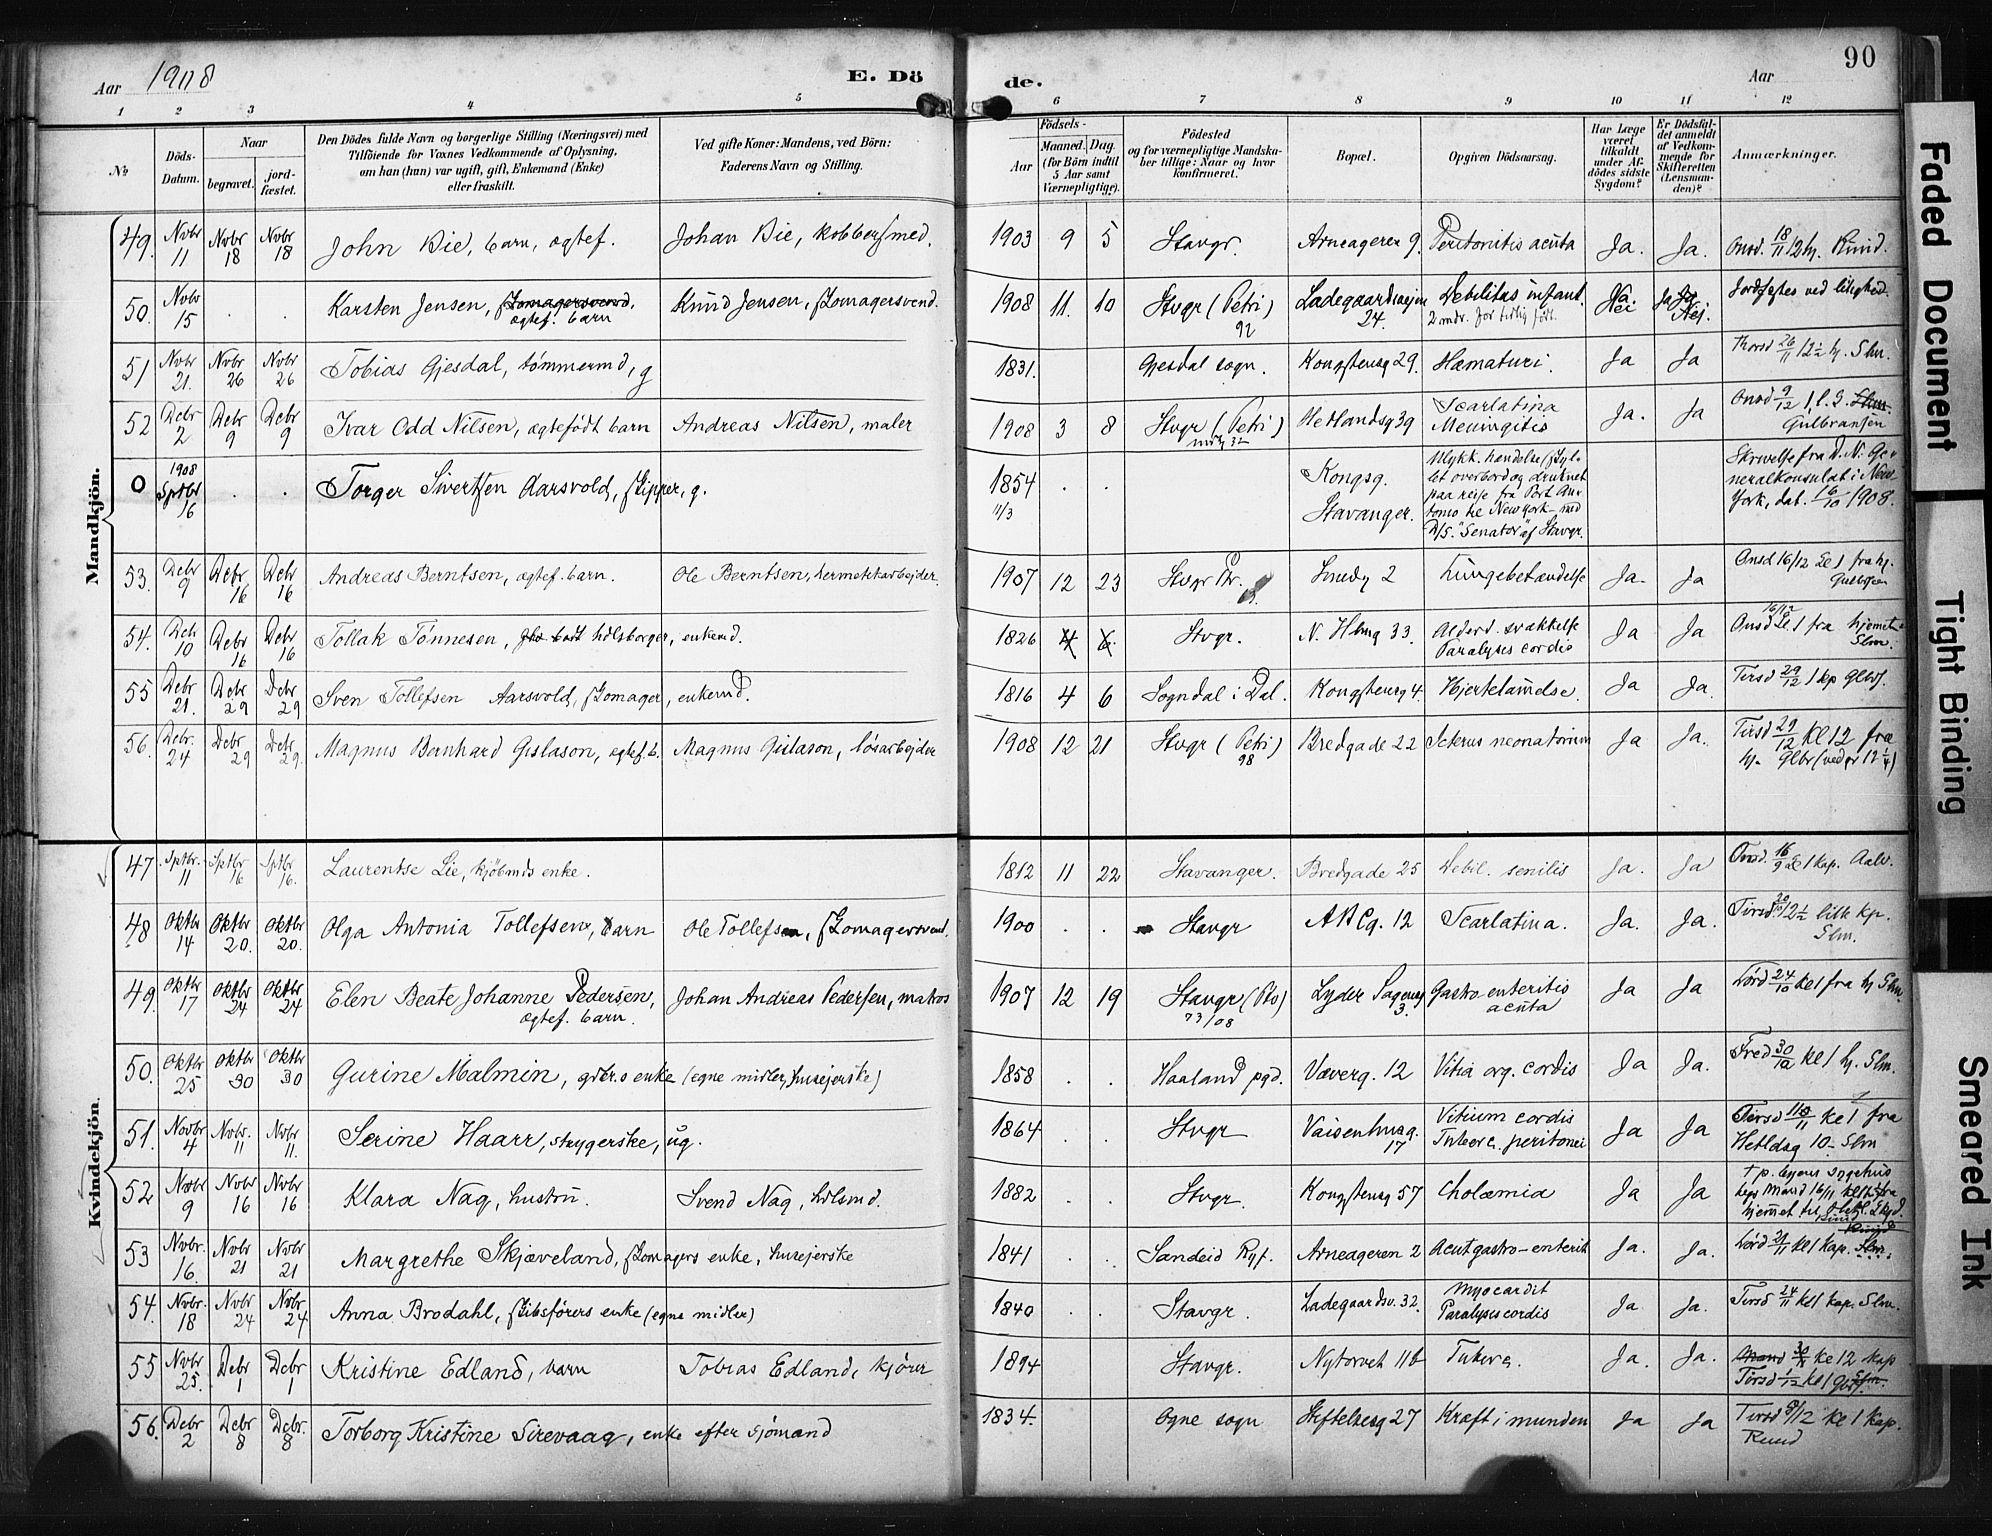 Aar 1908
E. Dö
de.
Aar
90
1 2 3 4 5 6 7 8 9 10 11 12
No
Döds-Datum.
Naar
begravet.
jord-fæstet.
Den Dödes fulde Navn og borgerlige Stilling (Næringsvei) med
Tilföiende for Voxnes Vedkommende af Oplysning,
om han (hun) var ugift, gift, Enkemand (Enke)
eller fraskilt.
Ved gifte Koner: Mandens, ved Börn:
Faderens Navn og Stilling.
Födsels-
Aar
Maaned. Dag.
(for Börn indtil
5 Aar samt
Værnepligtige).
Födested
og for værnepligtige Mandska-
ber tillige: Naar og hvor
konfirmeret.
Bopæl.
Opgiven Dödsaarsag.
Har Læge
været
tilkaldt
under Af-
dödes sidste
Sygdom?
Er Dödsfal-
det anmeldt
af Vedkom-
mende for
Skifteretten
(Lensman-
den)?
Anmærkninger.
Mandkjön.
49. Nvbr 11 Nvbr 18 Nvbr 18 John Bie, barn, ægtef. Johan Bie, kobbersmed. 1903 9 5 Stavgr. Arneageren 9. Peritonitis acuta Ja. Ja. Onsd. 18/11 12 hj. Ruud.
50. Nvbr 15 . . Karsten Jensen, skomagersvend, ægtef. barn Knud Jensen, skomagersvend. 1908 11. 10 Stvgr (Petri) 92 Ladegaardsveien 24. Debilitas infant. 2 mdr. for tidlig født. Nei Nei. Jordfæstes ved leilighed.
51 Nvbr 21. Nvbr 26 Nvbr 26 Tobias Gjesdal, tømmermd, g 1831. Gjesdal sogn. Kongstensg 29. Hæmaturi. Ja Ja Thorsd 26/11 12 1/2 hj. Slm.
52 Debr 2 Debr 9 Debr 9 Ivar Odd Nilsen, ægtefødt barn Andreas Nilsen, maler 1908 3 8 Stvgr (Petri) 32 Hetlandsg 39 Scarlatina Meningitis Ja. Ja Onsd 9/12 1 Slm Gulbransen
0 1908 Sptbr 16 . . Torger Sivertsen Aarsvold, skipper, g. 1854 11/3 . . Kongsg. Stavanger. Ulykk. hændelse (skyl-
let overbord og druknet
paa reise fra Port An-
tonio til New York med
D/S. "Senator" af Stavgr.
Skrivelse fra D. N. Ge-
neralkonsulat i New-
York, dat. 16/10 1908.
53. Debr 9 Debr 16 Debr 16 Andreas Berntsen, ægtef. barn. Ole Berntsen, hermetikarbejder. 1907 12 23 Stvgr Pr. Smedg 2 Lungebetændelse Ja. Ja Onsd 16/12 kl 1 fra hj. Gulbrsen
54. Deb 10 Debr 16 Debr 16 Tollak Tønnesen, husborger, enkemd. 1826 4 6. Stvgr. N. Hlmg 33. Alderd. svækkelse Paralyses cordis Ja Ja Onsd 16/12 kl 1 fra hjemmet Slm.
55 Debr 21. Debr 29 Debr 29 Sven Tollefsen Aarsvold, skomager, enkemd. 1816 4 6 Sogndal i Dal. Kongstensg 4. Hjertelamelse. Ja Ja. Tirsd 29/12 1 kp Glbrs.
56. Debr. 24 Debr 29 Debr 29. Magnus Bernhard Gislason, ægtef. b. Magnus Gislason, løsarbejder 1908 12 21 Stvgr (Petri) 98 Bredgade 22 Icterus neonatorium Ja Ja. Tirsd 29/12 kl 12 fra hj. Glbr (ved gr 12 1/4)
Kvindekjön.
47 Sptbr. 11 Sptbr 16 Sptbr. 16. Laurentse Lie, kjøbmds enke. 1812 11 22 Stavanger. Bredgade 25 Debil. senilis Ja. Ja Onsd. 16/9 kl 1 kap. Aalv.
48 Oktbr 14 Oktbr 20. Oktbr 20. Olga Antonia Tollefsen, barn Ole Tollefsen, skomagersvend. 1900 . . Stavgr ABCg. 12 Scarlatina. Ja. Ja. Tirsd 20/10 12 1/2 lille kp. Slm.
49. Oktbr 17 Oktbr 24 Oktbr 24 Elen Beate Johanne Pedersen, ægtef. barn. Johan Andreas Pedersen, matros 1907 12 19 Stavgr (Pto) 73/08 Lyder Sagensg 3. Gastro enteritis acuta Ja Ja Lørd 24/10 kl 1 fra hj Slm
50. Oktbr 25 Oktbr 30 Oktbr 30 Gurine Malmin, gdbr.s enke (egne midler, husejerske) 1858 . . Haaland pgd. Væverg. 12 Vitia org. cordis Ja Ja. Fred 30/10 kl 1 hj. Slm.
51. Novbr 4 Nvbr. 11 Nvbr 11. Serine Haarr, strygerske, ug. 1864 . . Stvgr Vaisenhusg. 17 Vitium cordis Tuberc. peritonei Ja Ja Tirsd 11/11 kl 1 fra Hetldsg 10. Slm
52 Nvbr 9 Nvbr 16 Nvbr 16 Klara Nag, hustru Svend Nag, hdlsmd. 1882 . . Stvgr. Kongstensg 57 Cholæmia Ja Ja † p. byens sygehus begr Mand 16/11 kl 1 fra hjemmet til
53 Nvbr. 16. Nvbr 21 Nvbr 21 Margrethe Skjæveland, skomagers enke, husejerske 1841 . . Sandeid Ryf. Arneageren 2 Acut gastro-enterit Ja. Ja. Lørd 21/11 kl 1 kap. Slm.
54. Nvbr. 18 Nvbr 24 Nvbr. 24 Anna Brodahl, skibsførers enke (egne midler) 1840 . . Stavgr. Ladegaardsv. 32. Myocardit Paralysis cordis Ja Ja. Tirsd 24/11 kl 1 kap. Slm.
55 Nvbr 25. Debr 1 Debr 1 Kristine Edland, barn Tobias Edland, kjører 1894 . . Stavgr. Nytorvet 11b Tuberc. Ja. Ja. Mand 30/11 kl 12 kap Tirsd 1/12 kl 1 Glbrs.
56. Debr 2 Debr 8 Debr. 8 Torborg Kristine Sirevaag, enke efter sjømand 1834. Ogne sogn Stiftelsesg 27 Kræft i munden Ja Ja Tirsd 8/12 kl 1 kap. Ruud
Faded Document
Tight Binding
Smeared Ink